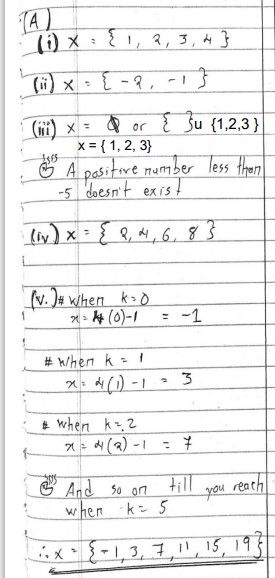 (A)
(i) x = { 1, 2, 3, 4 }
(ii) x = { -2, -1 }
(iii) x = ϕ or { }u {1,2,3 }
x = { 1, 2, 3}
A positive number less than
-5 doesn't exist
(iv) x = { 2, 4, 6, 8 }
(v.) # when k=0
x = 4(0)-1 = -1
# when k = 1
x = 4(1) - 1 = 3
# when k = 2
x = 4(2) - 1 = 7
And so on till you reach
when k = 5
∴ x = {-1, 3, 7, 11, 15, 19}